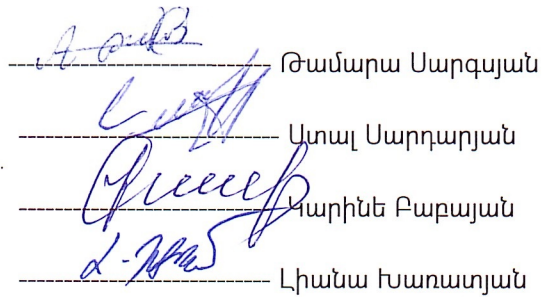 Թամարա Սարգսյան
Ատալ Սարդարյան
Կարինե Բաբայան
Լիանա Խառատյան